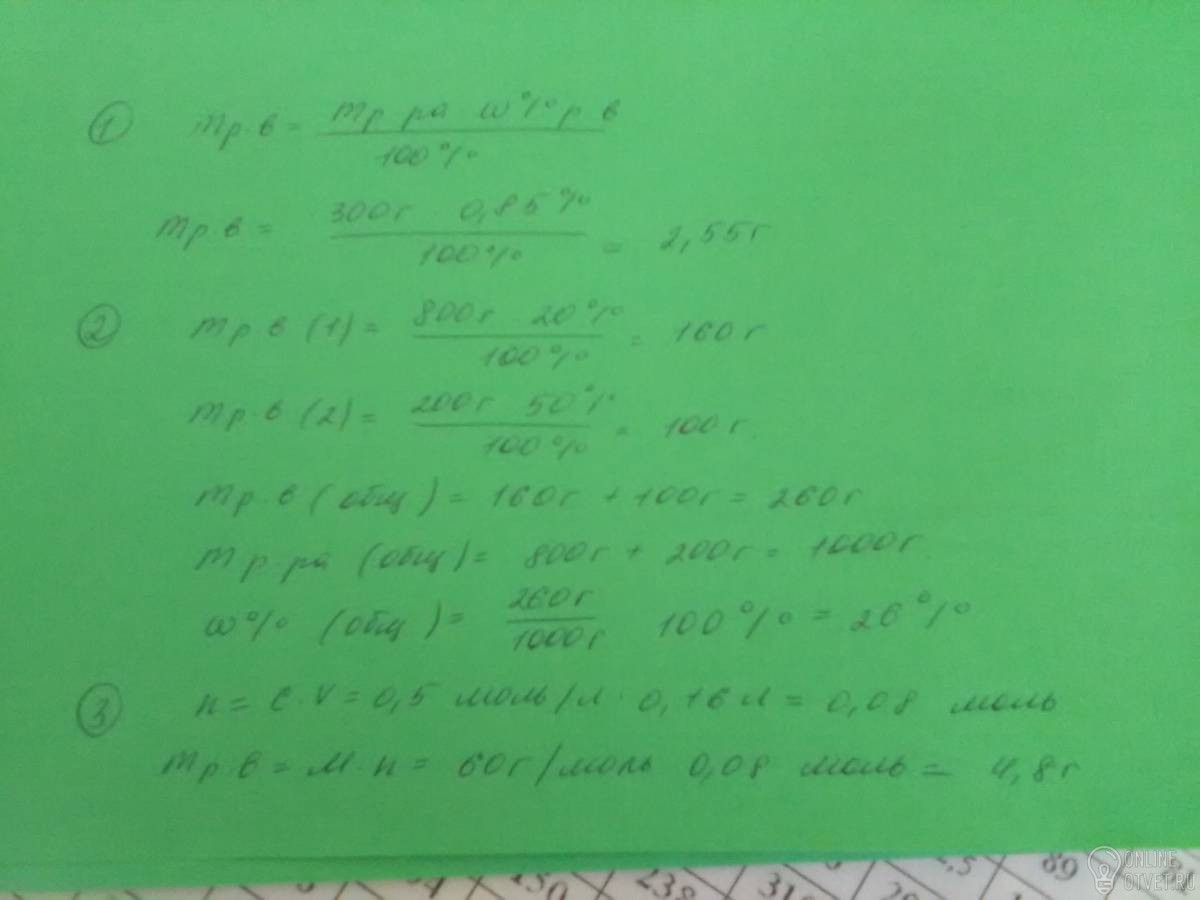 ① mр.в = mр ра ω% р в
100%
mр в = 300г 0,85%
100% = 2,55г
② mр в (1) = 800г 20%
100% = 160г
mр.в (2) = 200г 50%
100% = 100г.
mр.в (общ) = 160г + 100г = 260г
mр.ра (общ) = 800г + 200г = 1000г.
ω% (общ) = 260г
1000г 100% = 26%
③ n = C·V = 0,5 моль/л · 0,16л = 0,08 моль
mр.в = M·n = 60г/моль 0,08 моль = 4,8г
150 238 2,5 89
ONLINE
OTVET.RU